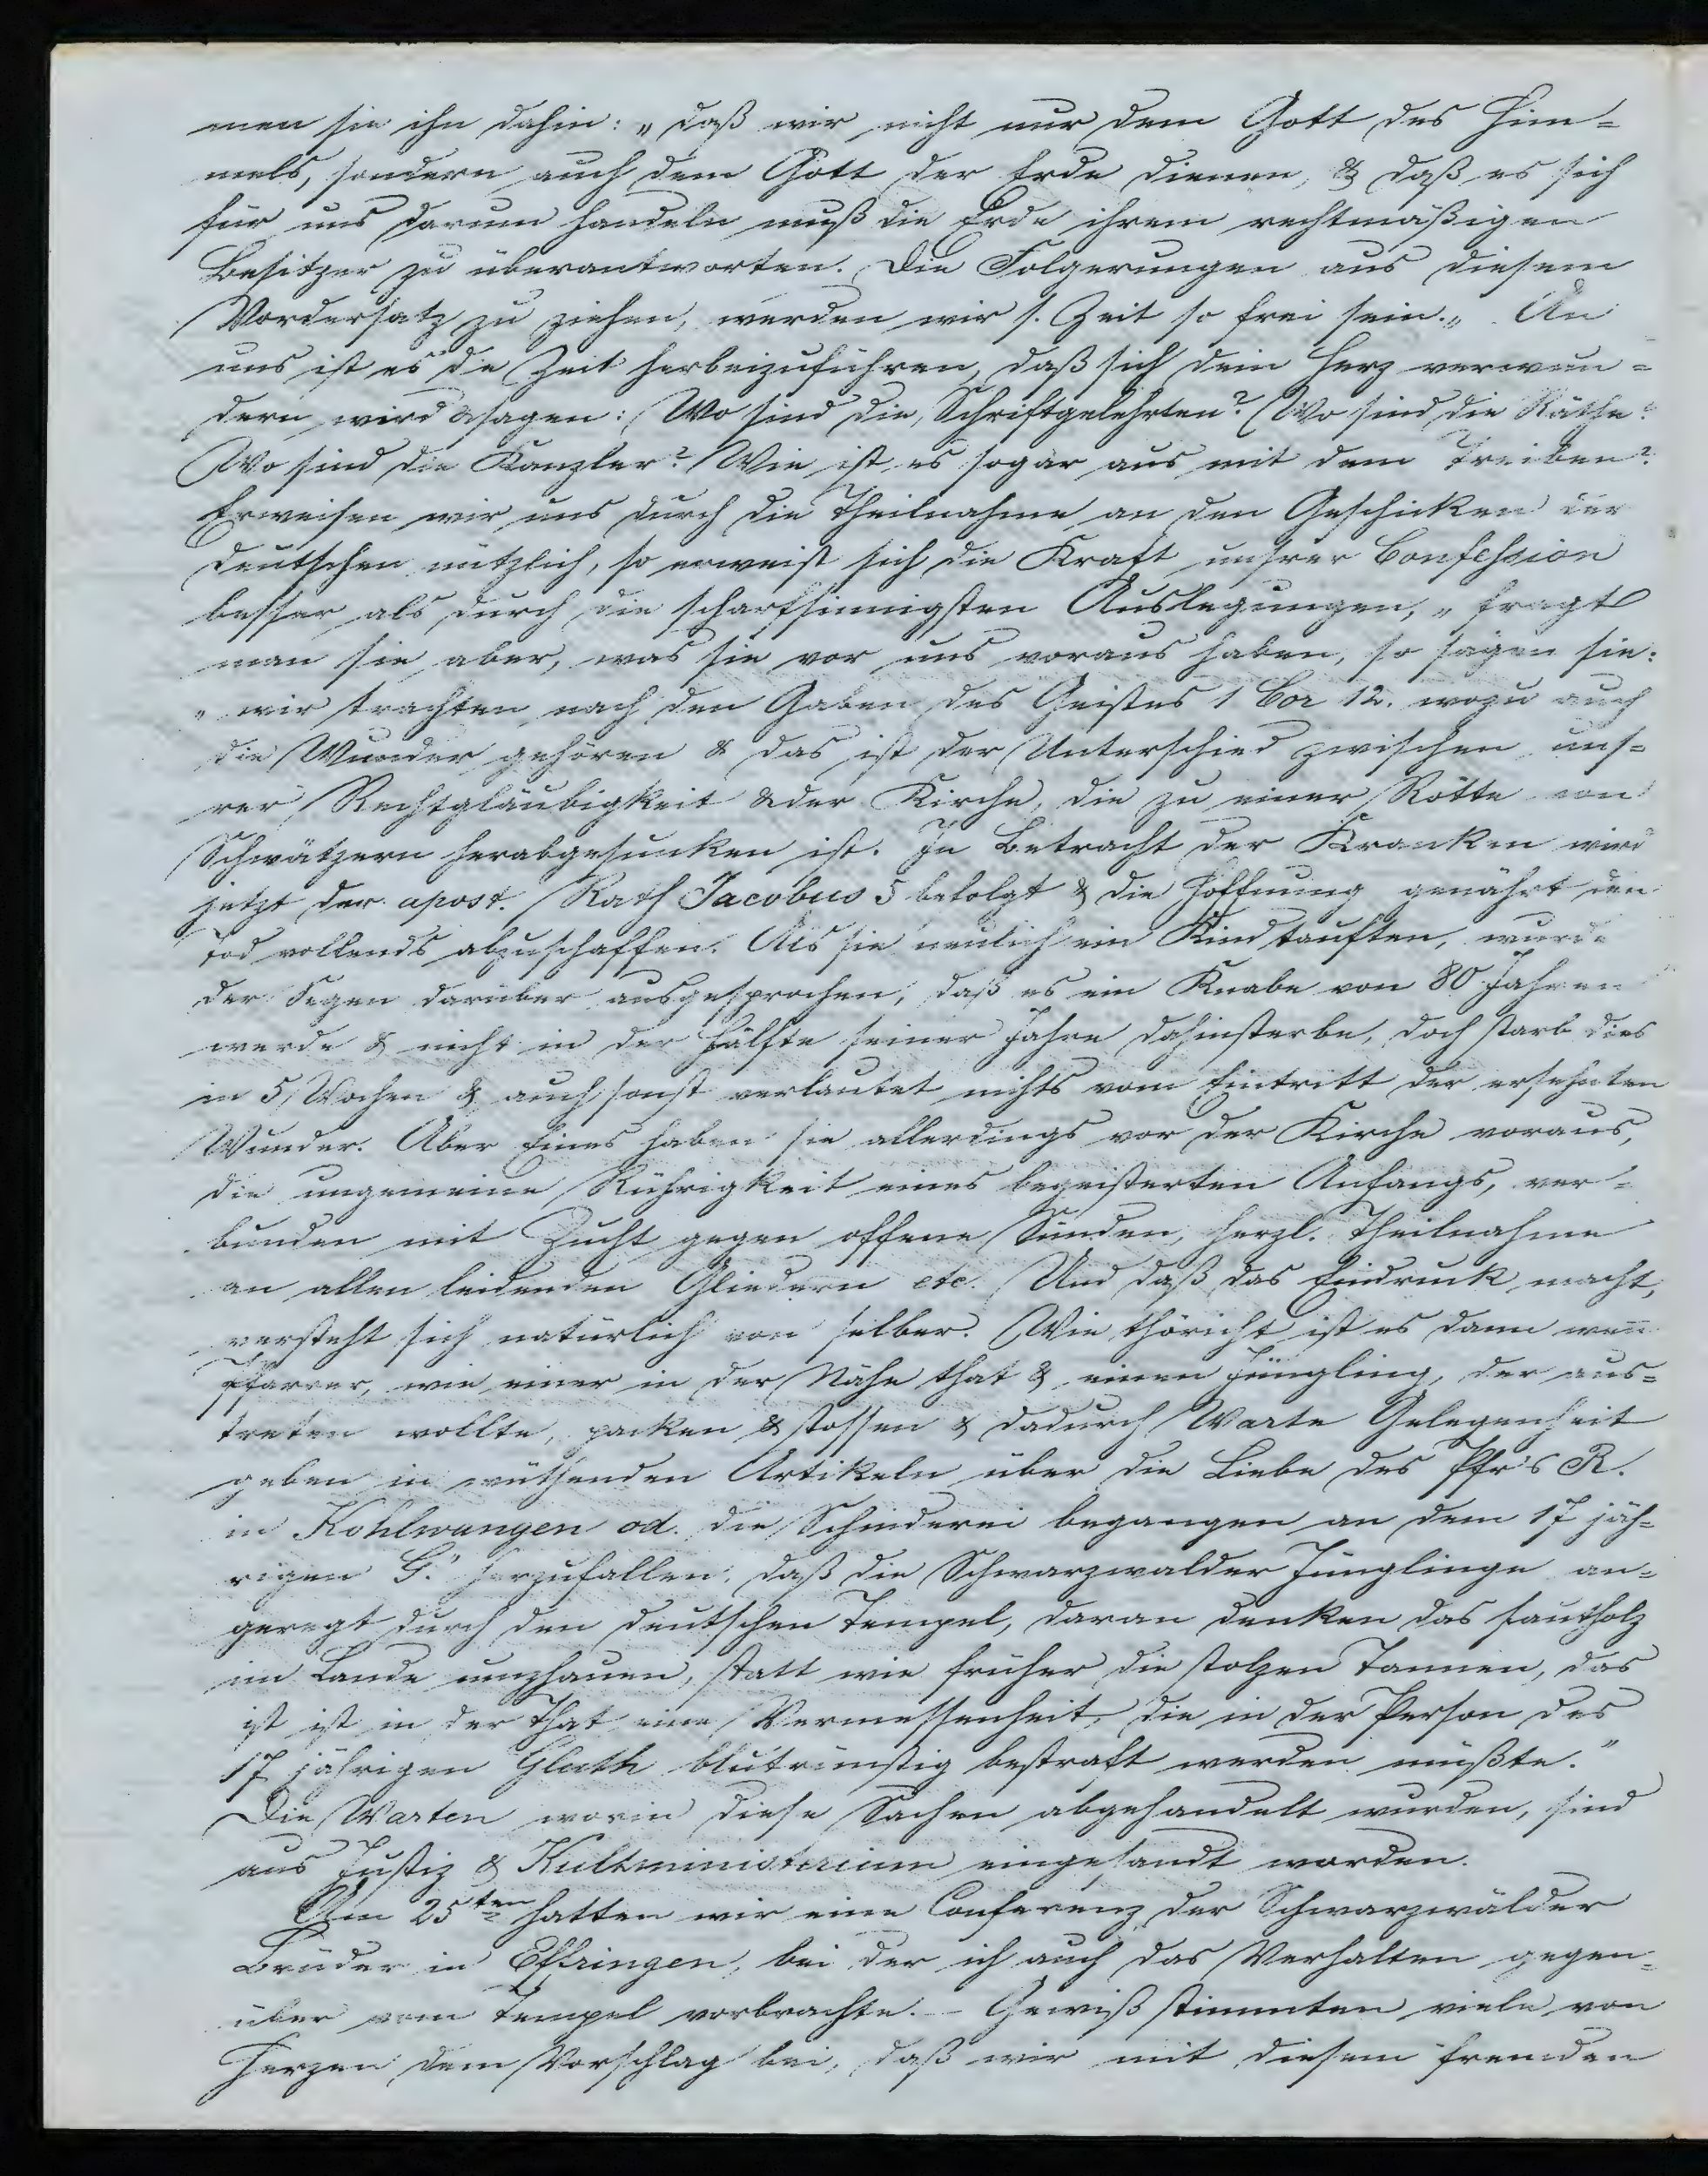 men sie ihn dahin: „daß wir nicht nur dem Gott des Him=
mels, sondern auch dem Gott der Erde dienen, & daß es sich
für uns darum handeln muß die Erde ihrem rechtmäßigen
Besitzer zu überantworten. Die Folgerungen aus diesem
Vordersatz zu ziehen, werden wir s. Zeit so frei sein.„ An
uns ist es die Zeit herbeizuführen, daß sich dein Herz verwun=
dern wird & sagen: Wo sind die Schriftgelehrten? Wo sind die Räthe?
Wo sind die Kanzler? Wie ist es sogar aus mit dem Treiben?
Erweisen wir uns durch die Theilnahme an den Geschicken der
Deutschen nützlich, so erweist sich die Kraft unsrer Confession
besser als durch die scharfsinnigsten Auslegungen, „ fragt
man sie aber, was sie vor uns voraus haben, so sagen sie:
„ wir trachten nach den Gaben des Geistes 1 Cor 12. wozu auch
die Wunder gehören & das ist der Unterschied zwischen uns=
rer Rechtgläubigkeit & der Kirche, die zu einer Rotte von
Schwätzern herabgesunken ist. In Betracht der Kranken wird
jetzt der apost. Rath Jacobus 5 befolgt & die Hoffnung genährt den
Tod vollends abzuschaffen. Als sie neulich ein Kind tauften, wurde
der Segen darüber ausgesprochen, daß es ein Knabe von 80 Jahren
werde & nicht in der Hälfte seiner Jahre dahinsterbe, doch starb dies
in 5 Wochen & auch sonst verlautet nichts vom Eintritt der ersehnten
Wunder. Aber Eines haben sie allerdings vor der Kirche voraus,
die ungemeine Rührigkeit eines begeisterten Anfangs, ver=
bunden mit Zucht gegen offene Sünden, herzl. Theilnahme
an allen leidenden Gliedern etc. Und daß das Eindruck macht,
versteht sich natürlich von selber. Wie thöricht ist es dann wenn
Pfarrer, wie einer in der Nähe that & einen Jüngling, der aus=
treten wollte, packen & stossen & dadurch Warte Gelegenheit
geben in wüthenden Artikeln über die Liebe des Pfr's R.
in Kohlwangen od. die Schinderei begangen an dem 17 jäh=
rigen G." herzufallen, daß die Schwarzwalder Jünglinge an=
geregt durch den deutschen Tempel, daran denken das faulholz
im Lande umzhauen, statt wie früher die stolzen Tannen, das
ist ist in der That eine Vermessenheit, die in der Person des
17 jährigen Gluth blutrünstig bestraft werden müßte."
Die Warten worin diese Sachen abgehandelt wurden, sind
aus Justiz & Kultministerium eingesandt worden.
Am 25ten hatten wir eine Conferenz der Schwarzwälder
Brüder in Effringen, bei der ich auch das Verhalten gegen=
über vom Tempel vorbrachte. - Gewiß stimmten viele von
Herzen dem Vorschlag bei, daß wir mit diesem fremden